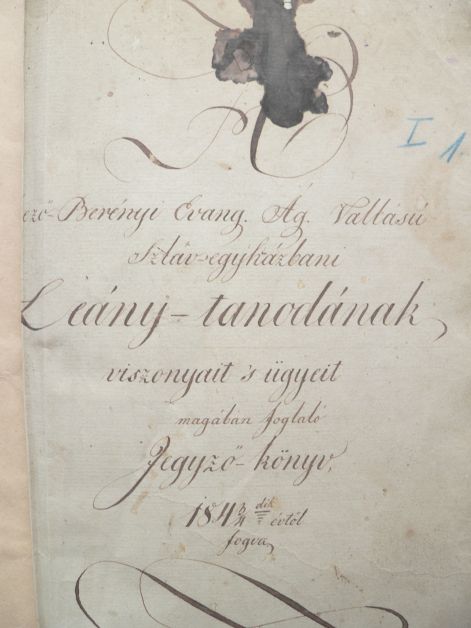 I 1.
ező-Berényi Evang. Ág. Vallású
Szláv-egyházbani
Leány-tanodának
viszonyait 's ügyeit
magában foglaló
Jegyző-könyv,
184 3/4 dik évtől
fogva